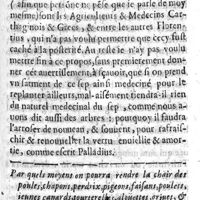 (afin que personne ne pése que je parle de moy
mesme) sont les Agriculteurs & Medecins Car-
thaginois & Grecs, & entre les autres Floren-
tius, qui n'a pas voulu permettre que cecy fust
caché à la posterité. Au reste je n'ay pas voulu
mettre fin à ce propos, sans premierement don-
ner cet avertissement, à sçavoir, que si on prend
un sarment de ce sep ainsi medeciné pour le
planter ailleurs, mal-aisément tiendra il rien
du naturel medecinal du sep, comme nous avons
dit aussi des arbres: pourquoy il faudra
l'arroser de nouveau, & souvent, pour rafrais-
chir & renouveller la vertu envieillie & amor-
tie, comme escrit Palladius.
Par quels moyens on pourra rendre la chair des
poules, chapons, perdrix, pigeons, faisans, poulets,
jeunes canards, tourterelles, aloüettes, grives, &